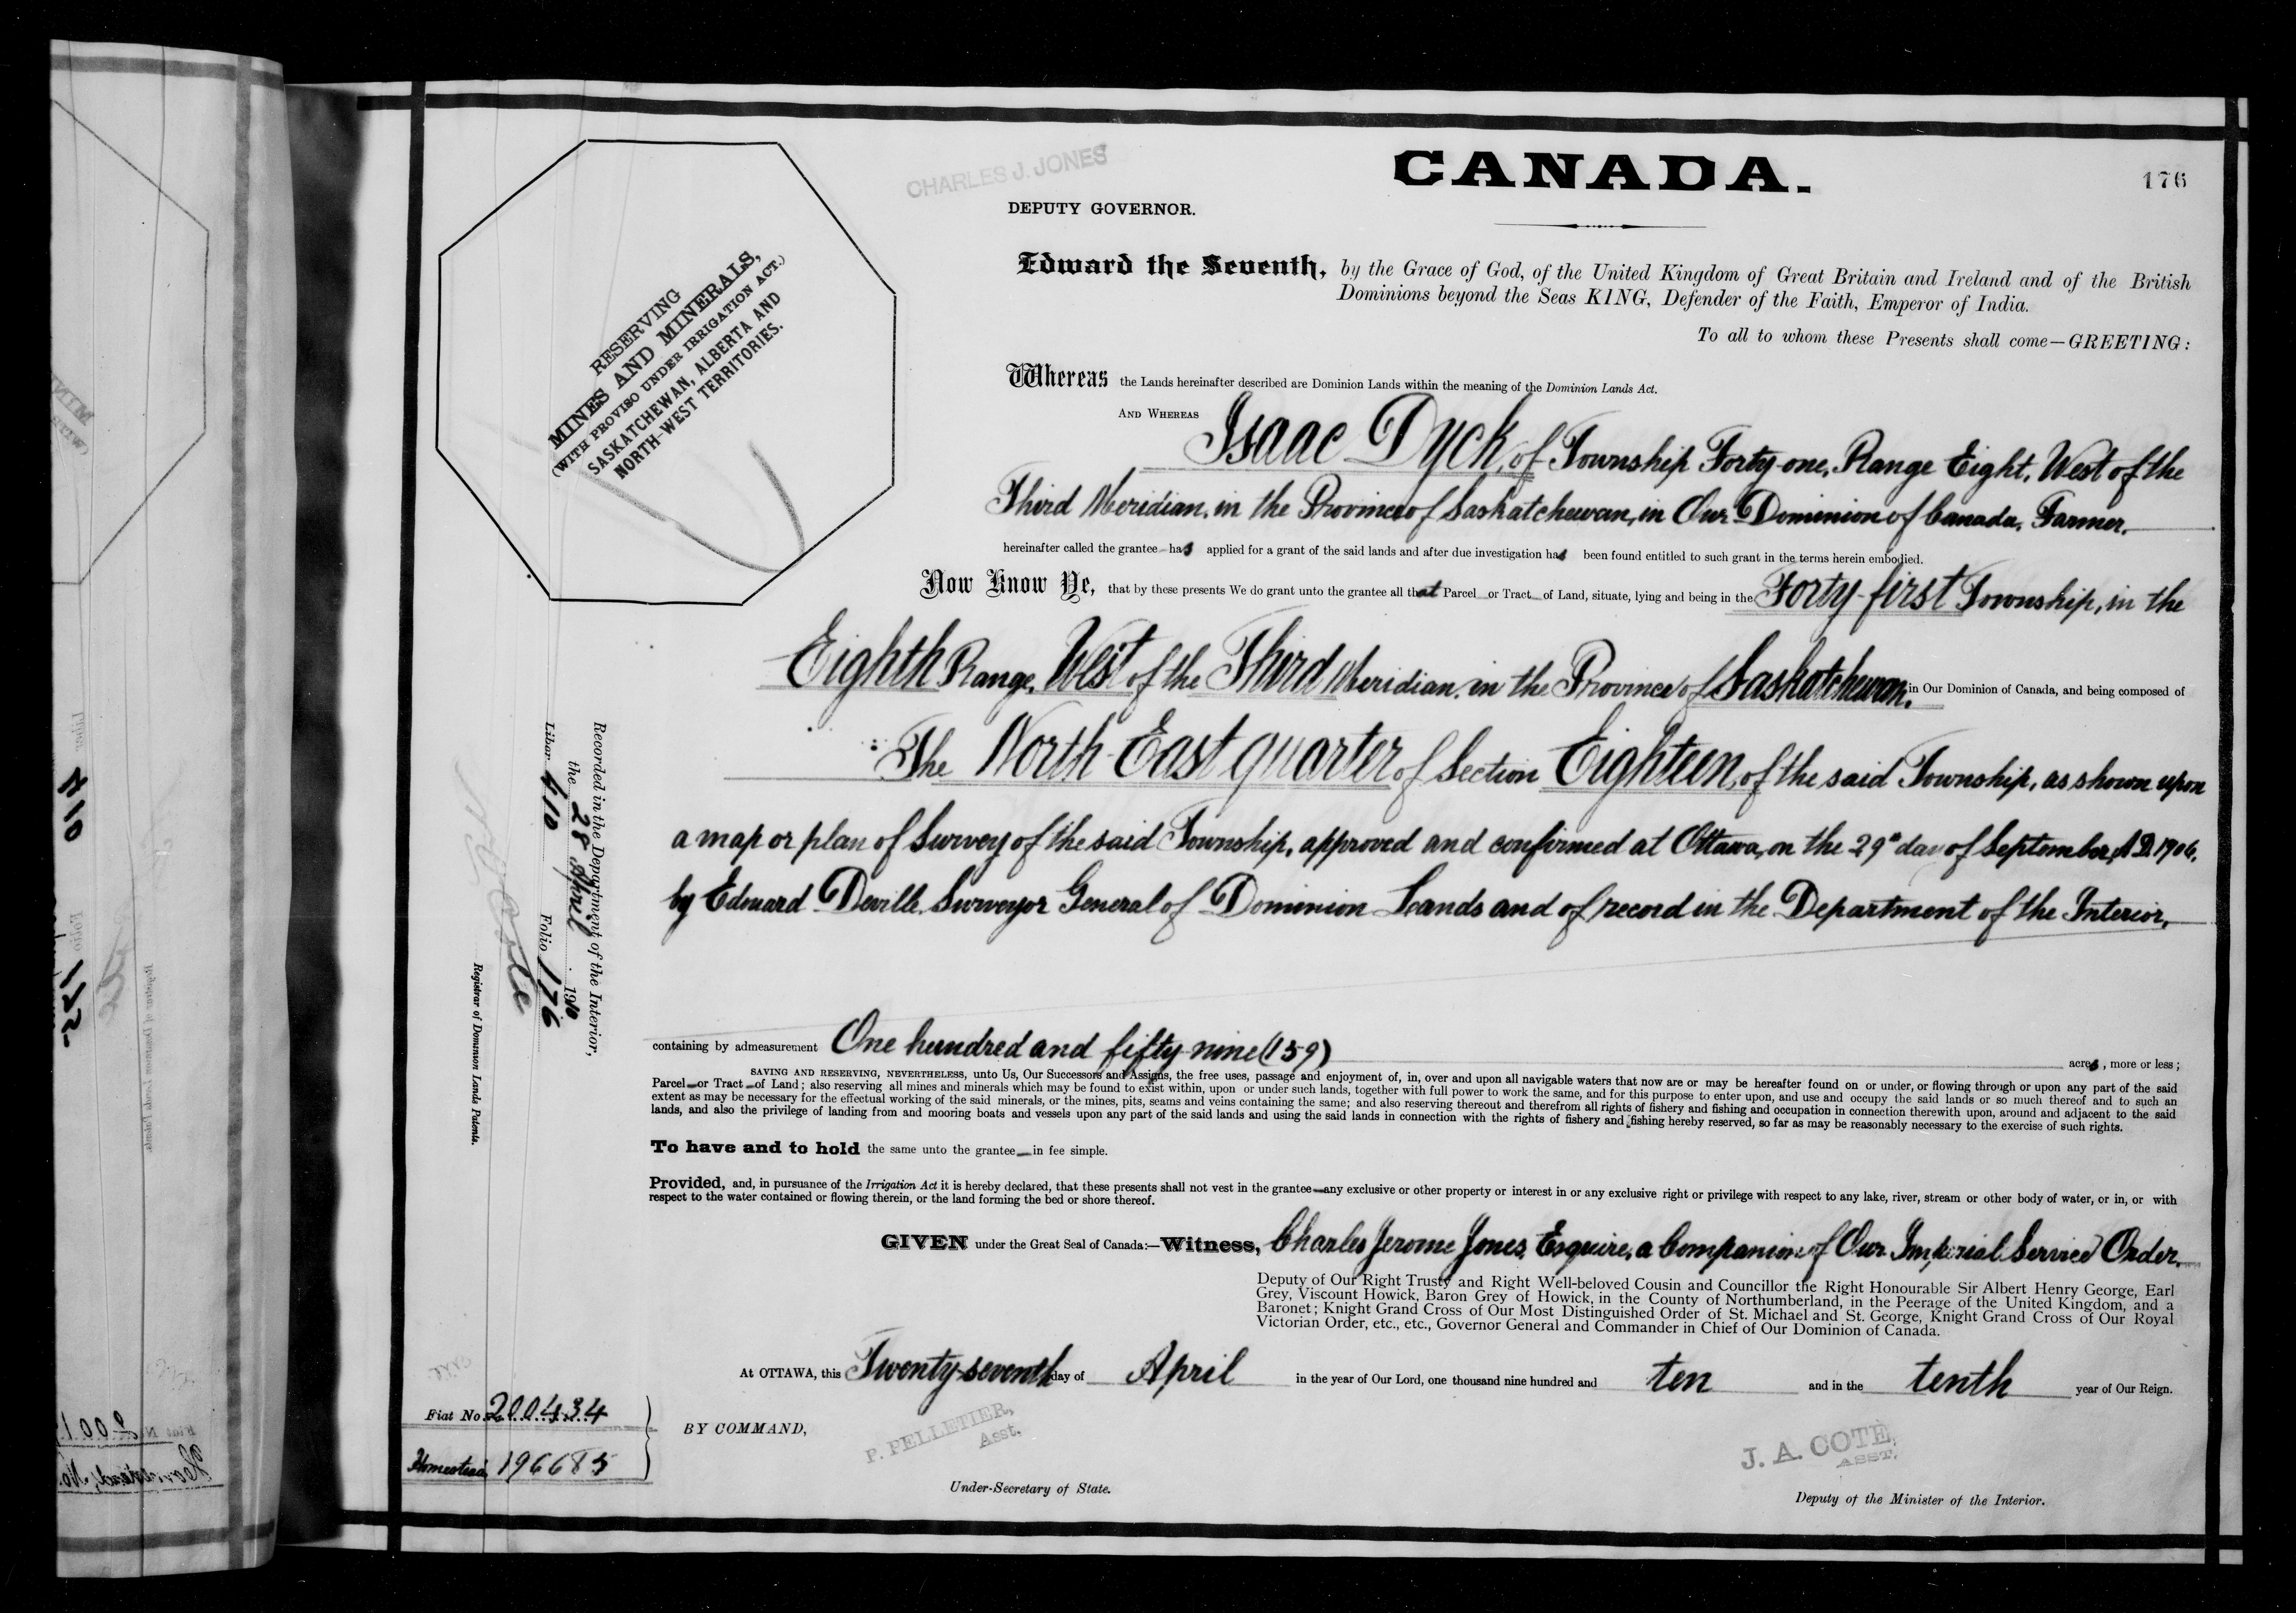 CANADA.
176
CHARLES J. JONES
DEPUTY GOVERNOR.
RESERVING
MINES AND MINERALS,
(WITH PROVISO UNDER IRRIGATION ACT.)
SASKATCHEWAN, ALBERTA AND
NORTH-WEST TERRITORIES.
Edward the Seventh, by the Grace of God, of the United Kingdom of Great Britain and Ireland and of the British
Dominions beyond the Seas KING, Defender of the Faith, Emperor of India.
To all to whom these Presents shall come—GREETING:
Whereas the Lands hereinafter described are Dominion Lands within the meaning of the Dominion Lands Act.
AND WHEREAS Isaac Dyck, of Township Forty-one, Range Eight, West of the
Third Meridian, in the Province of Saskatchewan, in Our Dominion of Canada, Farmer,
hereinafter called the grantee has applied for a grant of the said lands and after due investigation has been found entitled to such grant in the terms herein embodied.
Now Know Ye, that by these presents We do grant unto the grantee all that Parcel or Tract of Land, situate, lying and being in the Forty-first Township, in the
Eighth Range, West of the Third Meridian, in the Province of Saskatchewan, in Our Dominion of Canada, and being composed of
The North East quarter of Section Eighteen, of the said Township, as shown upon
a map or plan of Survey of the said Township, approved and confirmed at Ottawa, on the 29th day of September, A.D. 1906,
by Edouard Deville, Surveyor General of Dominion Lands and of record in the Department of the Interior,
containing by admeasurement One hundred and fifty-nine (159) acres, more or less;
SAVING AND RESERVING, NEVERTHELESS, unto Us, Our Successors and Assigns, the free uses, passage and enjoyment of, in, over and upon all navigable waters that now are or may be hereafter found on or under, or flowing through or upon any part of the said
Parcel or Tract of Land; also reserving all mines and minerals which may be found to exist within, upon or under such lands, together with full power to work the same, and for this purpose to enter upon, and use and occupy the said lands or so much thereof and to such an
extent as may be necessary for the effectual working of the said minerals, or the mines, pits, seams and veins containing the same; and also reserving thereout and therefrom all rights of fishery and fishing and occupation in connection therewith upon, around and adjacent to the said
lands, and also the privilege of landing from and mooring boats and vessels upon any part of the said lands and using the said lands in connection with the rights of fishery and fishing hereby reserved, so far as may be reasonably necessary to the exercise of such rights.
To have and to hold the same unto the grantee in fee simple.
Provided, and, in pursuance of the Irrigation Act it is hereby declared, that these presents shall not vest in the grantee any exclusive or other property or interest in or any exclusive right or privilege with respect to any lake, river, stream or other body of water, or in, or with
respect to the water contained or flowing therein, or the land forming the bed or shore thereof.
GIVEN under the Great Seal of Canada:—Witness, Charles Jerome Jones, Esquire, a Companion of Our Imperial Service Order,
Deputy of Our Right Trusty and Right Well-beloved Cousin and Councillor the Right Honourable Sir Albert Henry George, Earl
Grey, Viscount Howick, Baron Grey of Howick, in the County of Northumberland, in the Peerage of the United Kingdom, and a
Baronet; Knight Grand Cross of Our Most Distinguished Order of St. Michael and St. George, Knight Grand Cross of Our Royal
Victorian Order, etc., etc., Governor General and Commander in Chief of Our Dominion of Canada.
At OTTAWA, this Twenty-seventh day of April in the year of Our Lord, one thousand nine hundred and ten and in the tenth year of Our Reign.
BY COMMAND,
P. PELLETIER,
Asst.
Under-Secretary of State.
J. A. COTE,
ASST.
Deputy of the Minister of the Interior.
Fiat No. 200434
Homestead 196685
Recorded in the Department of the Interior,
the 28 April 1910
Liber 410 Folio 176
Registrar of Dominion Lands Patents.